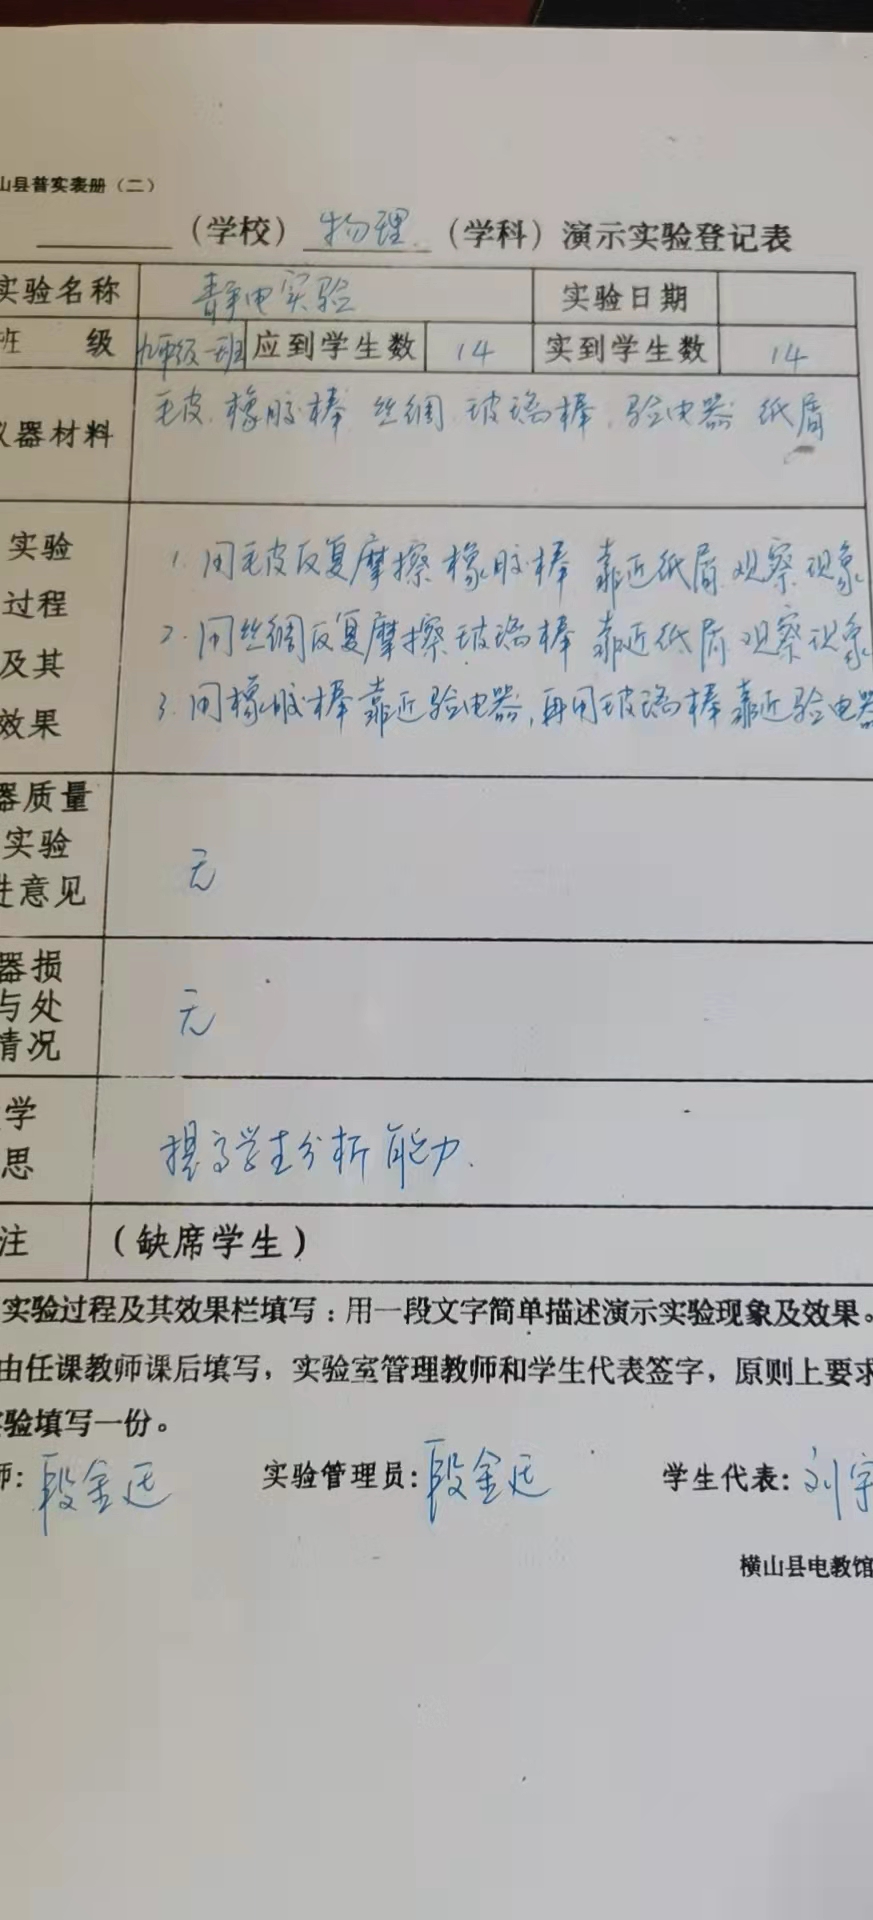 山县普实表册（二）
（学校）物理（学科）演示实验登记表
实验名称 静电实验 实验日期
班 级 九年级一班 应到学生数 14 实到学生数 14
仪器材料 毛皮 橡胶棒 丝绸 玻璃棒 验电器 纸屑
实验
过程
及其
效果
1. 用毛皮反复摩擦橡胶棒 靠近纸屑 观察现象
2. 用丝绸反复摩擦玻璃棒 靠近纸屑 观察现象
3. 用橡胶棒靠近验电器，再用玻璃棒靠近验电器
器质量
实验
进意见
无
器损
与处
情况
无
学
思
提高学生分析能力.
注 （缺席学生）
实验过程及其效果栏填写：用一段文字简单描述演示实验现象及效果。
由任课教师课后填写，实验室管理教师和学生代表签字，原则上要求
实验填写一份。
师：段金廷 实验管理员：段金廷 学生代表：刘宇
横山县电教馆